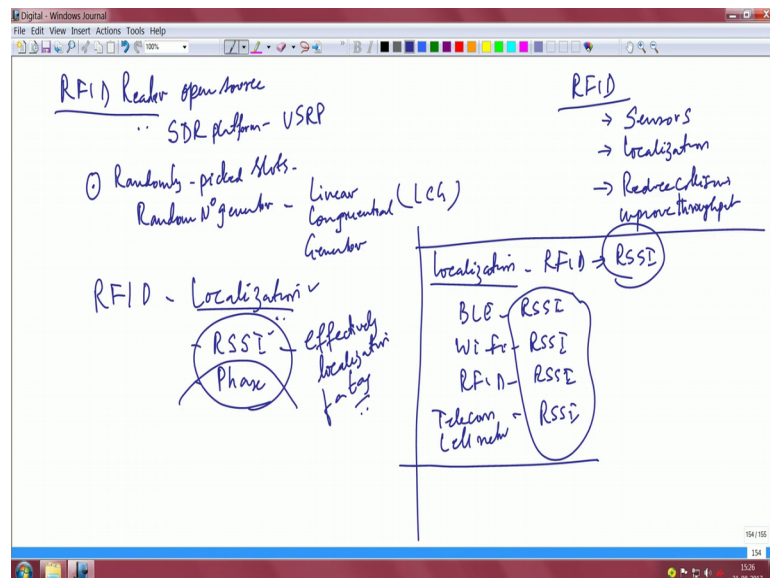 Digital - Windows Journal
File Edit View Insert Actions Tools Help
100%
RFID Reader open source
SDR platform - USRP
Randomly - picked slots -
Random No generator - Linear
Congruential (LCG)
Generator
RFID - Localization
RSSI - effectively
Phase localization
for tag
RFID
→ Sensors
→ Localization
→ Reduce collisions
improve throughput
Localization - RFID → RSSI
BLE - RSSI
WiFi - RSSI
RFID - RSSI
Telecom - RSSI
Cell
154 / 155
154
15:26